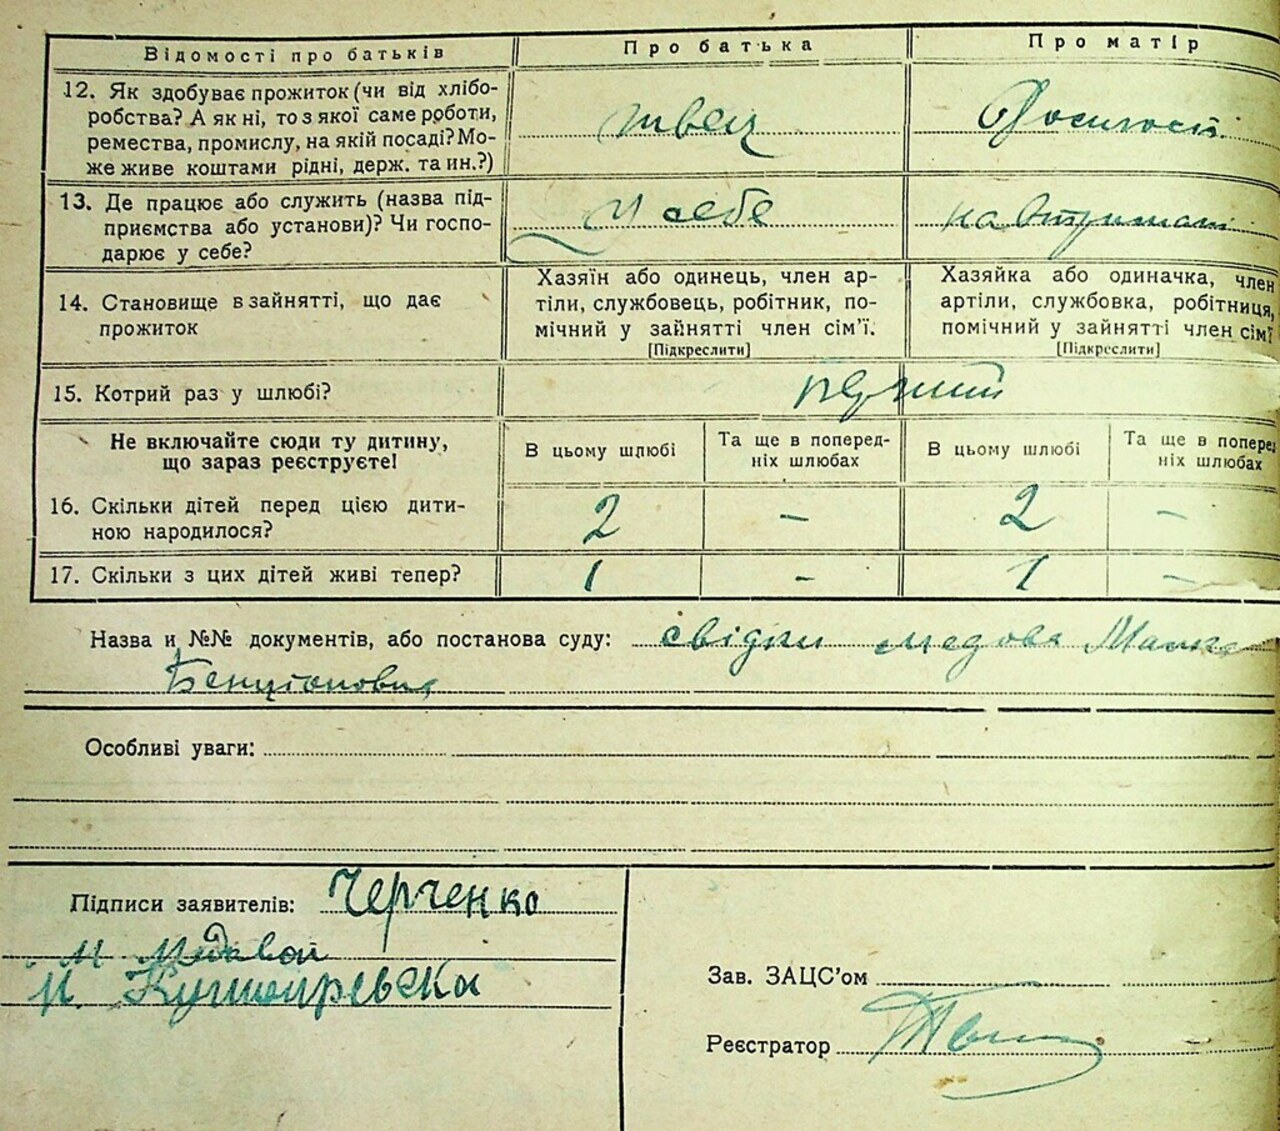 Відомості про батьків
Про батька
Про матір
12. Як здобуває прожиток (чи від хлібо-
робства? А як ні, то з якої саме роботи,
ремества, промислу, на якій посаді? Мо-
же живе коштами рідні, держ. та ин.?)
швец
13. Де працює або служить (назва під-
приємства або установи)? Чи госпо-
дарює у себе?
у себе
на
14. Становище в зайнятті, що дає
прожиток
Хазяїн або одинець, член ар-
тіли, службовець, робітник, по-
мічний у зайнятті член сім'ї.
[Підкреслити]
Хазяйка або одиначка, член
артіли, службовка, робітниця,
помічний у зайнятті член сім'ї
[Підкреслити]
15. Котрий раз у шлюбі?
перший
Не включайте сюди ту дитину,
що зараз реєструєте!
В цьому шлюбі
Та ще в поперед-
ніх шлюбах
В цьому шлюбі
Та ще в поперед
ніх шлюбах
16. Скільки дітей перед цією дити-
ною народилося?
2
–
2
–
17. Скільки з цих дітей живі тепер?
1
–
1
–
Назва и №№ документів, або постанова суду: свідки медова
Бенціоновна
Особливі уваги:
Підписи заявителів: Черченко
М
Зав. ЗАЦС'ом
Реєстратор